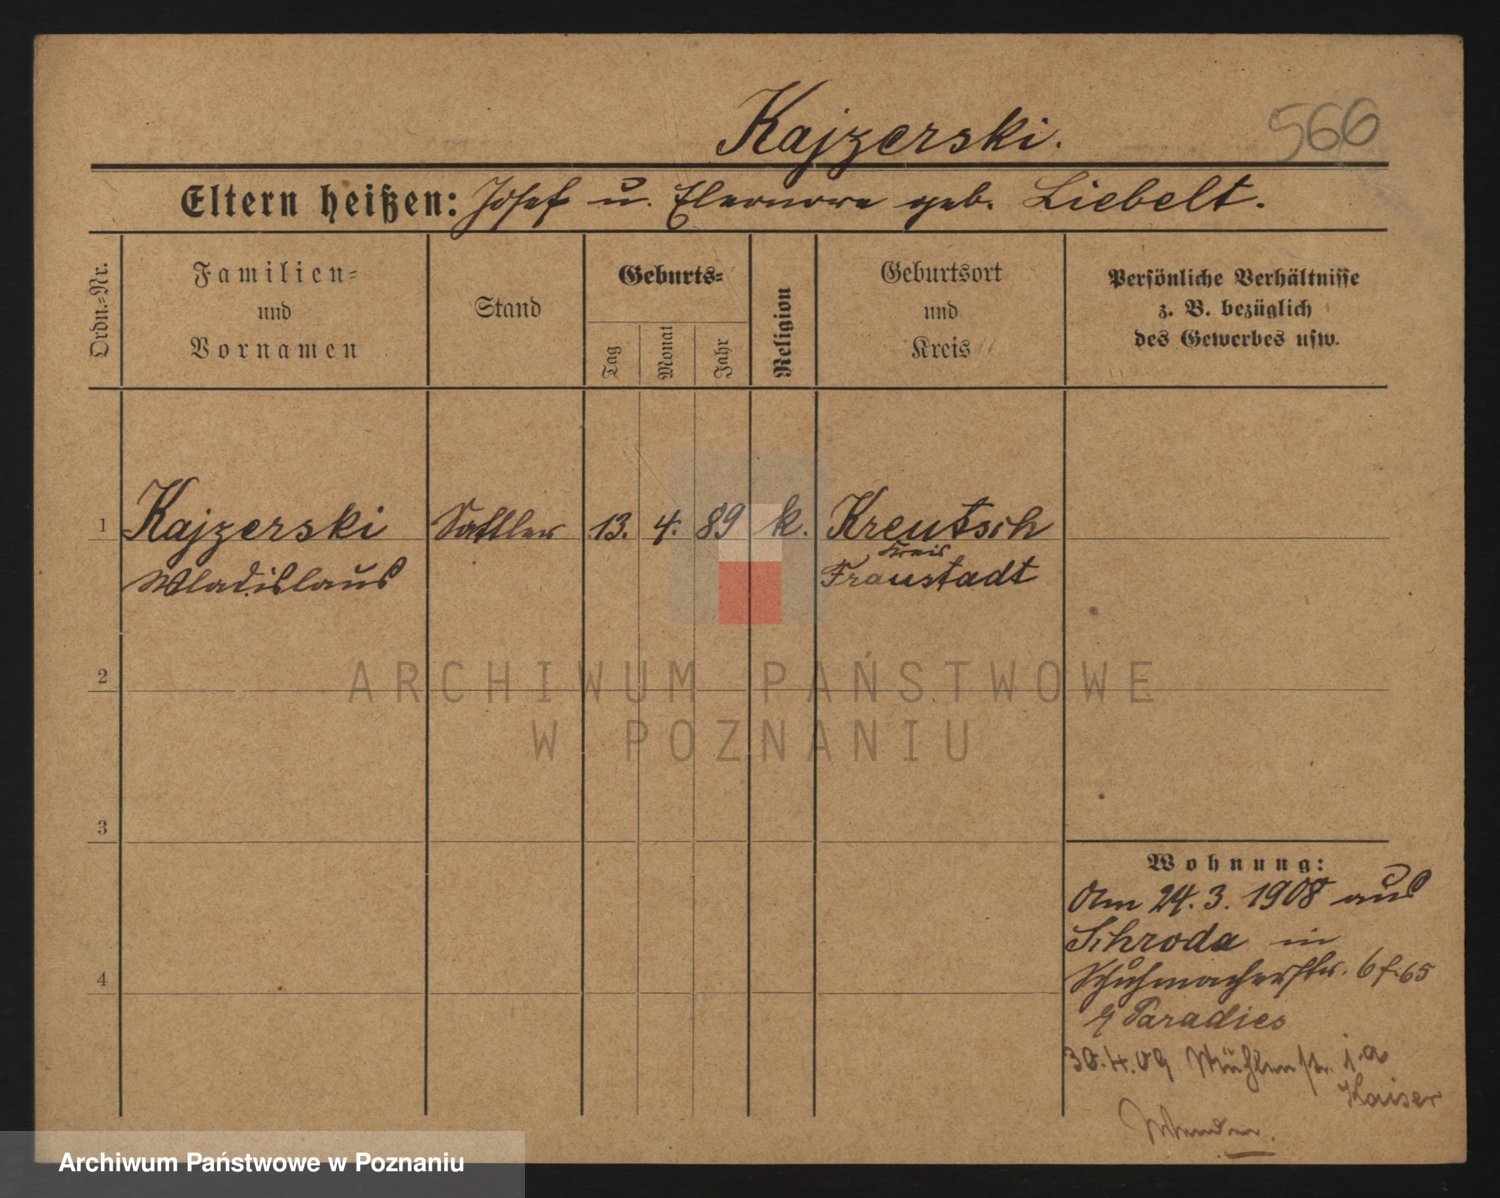 Kajzerski.
566
Eltern heißen: Josef u. Eleonore geb. Liebelt.
Ordn.-Nr.
Familien-
und
Vornamen
Stand
Geburts-
Tag
Monat
Jahr
Religion
Geburtsort
und
Kreis
Persönliche Verhältnisse
z. B. bezüglich
des Gewerbes usw.
1 Kajzerski Sattler 13. 4. 89 k. Kreutsch
Kreis
Wladislaus Fraustadt
2
ARCHIWUM PAŃSTWOWE
W POZNANIU
3
Wohnung:
Am 24.3.1908 aus
Schroda in
Schuhmacherstr. 6
Paradies
4
30.4.09 Mühlenstr.
Kaiser
Archiwum Państwowe w Poznaniu